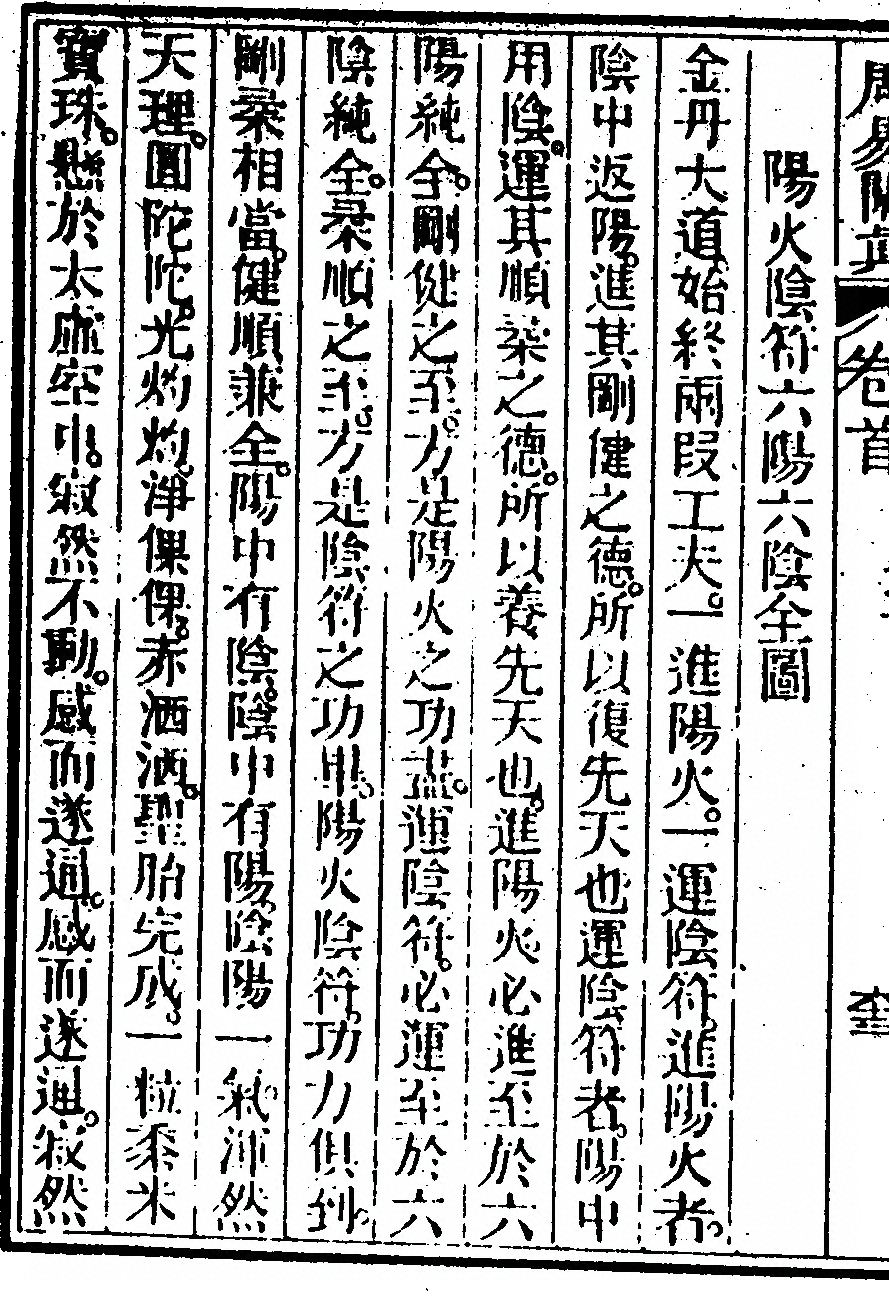 周易闡真 卷首
陽火陰符六陽六陰全圖
金丹大道。始終兩段工夫。一進陽火。一運陰符。進陽火者。
陰中返陽。進其剛健之德。所以復先天也運陰符者。陽中
用陰。運其順柔之德。所以養先天也。進陽火必進至於六
陽純全。剛健之至。方是陽火之功盡。運陰符。必運至於六
陰純全。柔順之至。方是陰符之功畢。陽火陰符。功力俱到。
剛柔相當。健順兼全。陽中有陰。陰中有陽。陰陽一氣。渾然
天理。圓陀陀。光灼灼。淨倮倮。赤洒洒。聖胎完成。一粒黍米
寶珠。懸於太虛空中。寂然不動。感而遂通。感而遂通。寂然